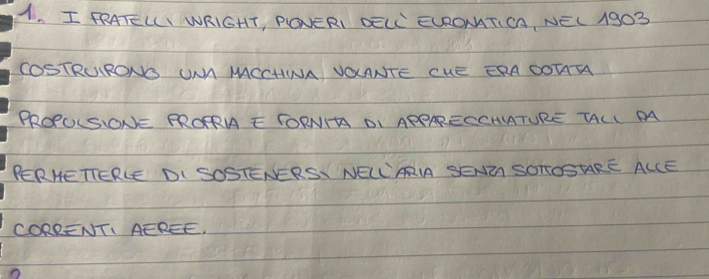 1. I FRATELLI WRIGHT, PIONERI DELL'EURONATICA, NEL 1903
COSTRUIRONO UNA MACCHINA VOLANTE CHE ERA DOTATA
PROPULSIONE PROPRIA E FORNITA DI APPARECCHIATURE TALI DA
PERMETTERLE DI SOSTENERSI NELL'ARIA SENZA SOTTOSTARE ALLE
CORRENTI AEREE.